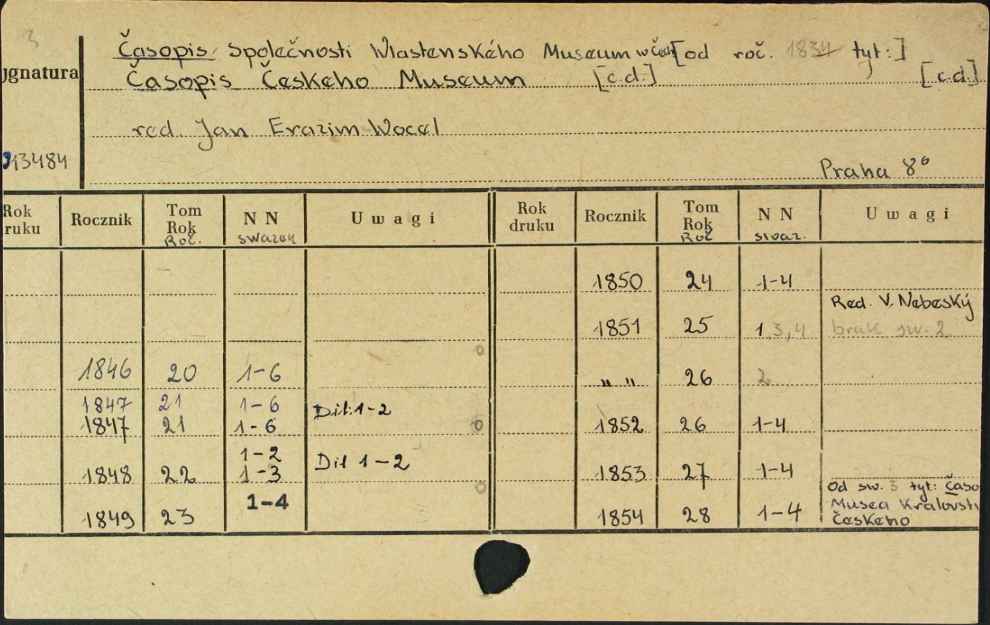 3
Časopis Společnosti Wlastenského Museum w Čech [od roč. 1831 tyt:]
ygnatura Časopis Českeho Museum [c.d.] [c.d.]
red Jan Erazim Wocel
13484
Praha 8°
Rok ruku Rocznik Tom Rok Roč. N N swazek Uwagi Rok druku Rocznik Tom Rok Roč N N swaz. Uwagi
1850 24 1-4
Red. V. Nebeský
1851 25 1,3,4 brak sw. 2
1846 20 1-6 „ „ 26 2
1847 21 1-6 Dil: 1-2
1847 21 1-6 1852 26 1-4
1-2
1848 22 1-3 Dil 1-2 1853 27 1-4
Od sw. 3 tyt: Časo
1-4 Musea Kralovstv
1849 23 1854 28 1-4 Českeho